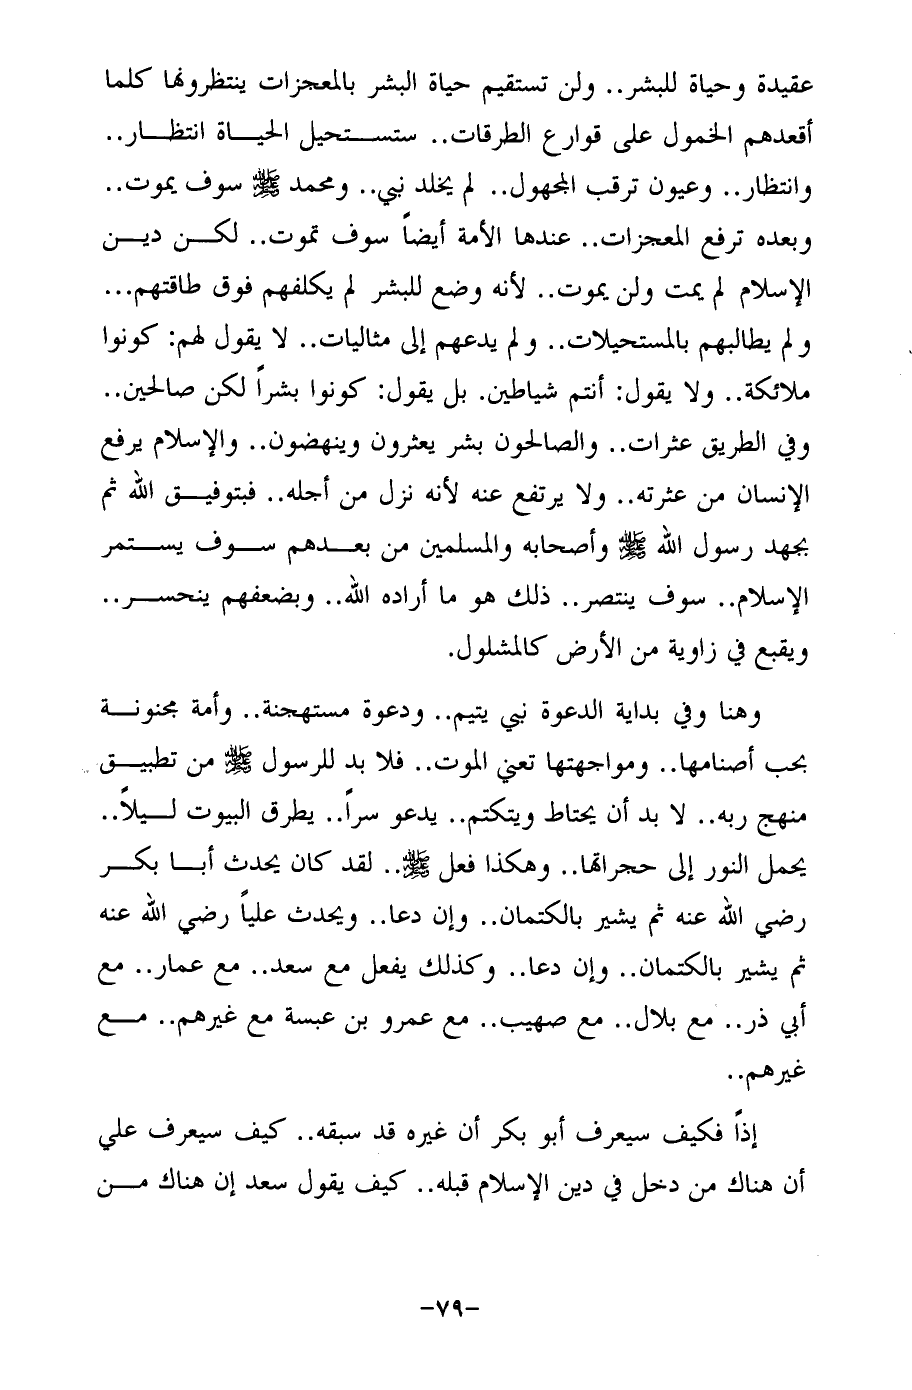 عقيدة وحياة للبشر.. ولن تستقيم حياة البشر بالمعجزات ينتظرونها كلما
أقعدهم الخمول على قوارع الطرقات.. ستستحيل الحياة انتظار..
وانتظار.. وعيون ترقب المجهول.. لم يخلد نبي.. ومحمد ﷺ سوف يموت..
وبعده ترفع المعجزات.. عندها الأمة أيضاً سوف تموت.. لكن دين
الإسلام لم يمت ولن يموت.. لأنه وضع للبشر لم يكلفهم فوق طاقتهم...
ولم يطالبهم بالمستحيلات.. ولم يدعهم إلى مثاليات.. لا يقول لهم: كونوا
ملائكة.. ولا يقول: أنتم شياطين. بل يقول: كونوا بشراً لكن صالحين..
وفي الطريق عثرات.. والصالحون بشر يعثرون وينهضون.. والإسلام يرفع
الإنسان من عثرته.. ولا يرتفع عنه لأنه نزل من أجله.. فبتوفيق الله ثم
بجهد رسول الله ﷺ وأصحابه والمسلمين من بعدهم سوف يستمر
الإسلام.. سوف ينتصر.. ذلك هو ما أراده الله.. وبضعفهم ينحسر..
ويقبع في زاوية من الأرض كالمشلول.
وهنا وفي بداية الدعوة نبي يتيم.. ودعوة مستهجنة.. وأمة مجنونة
بحب أصنامها.. ومواجهتها تعني الموت.. فلا بد للرسول ﷺ من تطبيق
منهج ربه.. لا بد أن يحتاط ويتكتم.. يدعو سراً.. يطرق البيوت ليلاً..
يحمل النور إلى حجراتها.. وهكذا فعل ﷺ.. لقد كان يحدث أبا بكر
رضي الله عنه ثم يشير بالكتمان.. وإن دعا.. ويحدث علياً رضي الله عنه
ثم يشير بالكتمان.. وإن دعا.. وكذلك يفعل مع سعد.. مع عمار.. مع
أبي ذر.. مع بلال.. مع صهيب.. مع عمرو بن عبسة مع غيرهم.. مع
غيرهم..
إذاً فكيف سيعرف أبو بكر أن غيره قد سبقه.. كيف سيعرف علي
أن هناك من دخل في دين الإسلام قبله.. كيف يقول سعد إن هناك من
-٧٩-